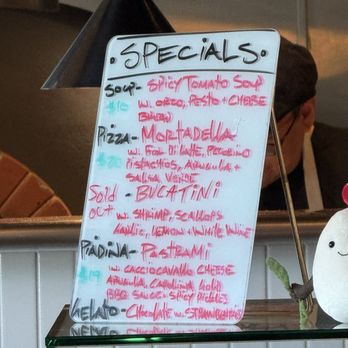 SPECIALS
SOUP - SPICY TOMATO SOUP
$10 W. ORZO, PESTO + CHEESE
BREAD
PIZZA - MORTADELLA
$20 W. FIOR DI LATTE, PECORINO
PISTACHIOS, ARUGULA +
SALSA VERDE
Sold BUCATINI
OUT W. SHRIMP, SCALLOPS
GARLIC, LEMON + WHITE WINE
PIADINA - PASTRAMI
$19 W. CACCIOCAVALLO CHEESE
ARUGULA, CAROLINA GOLD
BBQ SAUCE + SPICY PICKLES
GELATO - CHOCOLATE W. STRAWBERRIES